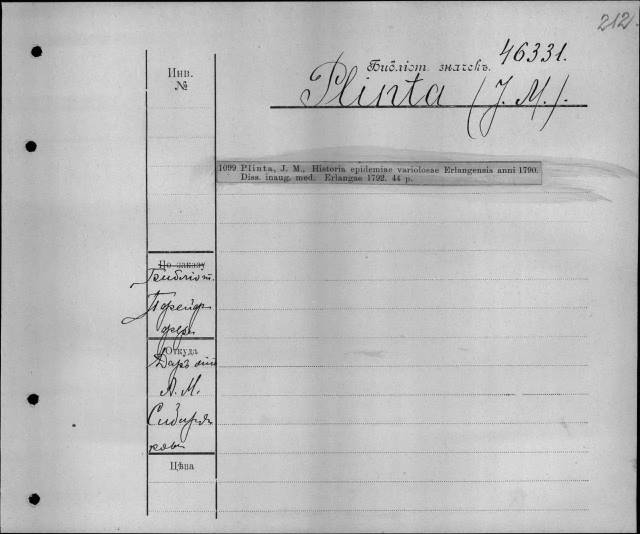 212.
46331.
Библіот. значекъ.
Plinta (J. M.).
Инв.
№
1099 Plinta, J. M., Historia epidemiae variolosae Erlangensis anni 1790.
Diss. inaug. med. Erlangae 1792. 44 p.
По заказу
Библіот.
Откуда
Даръ
А. М.
Сибиря-
кова
Цѣна